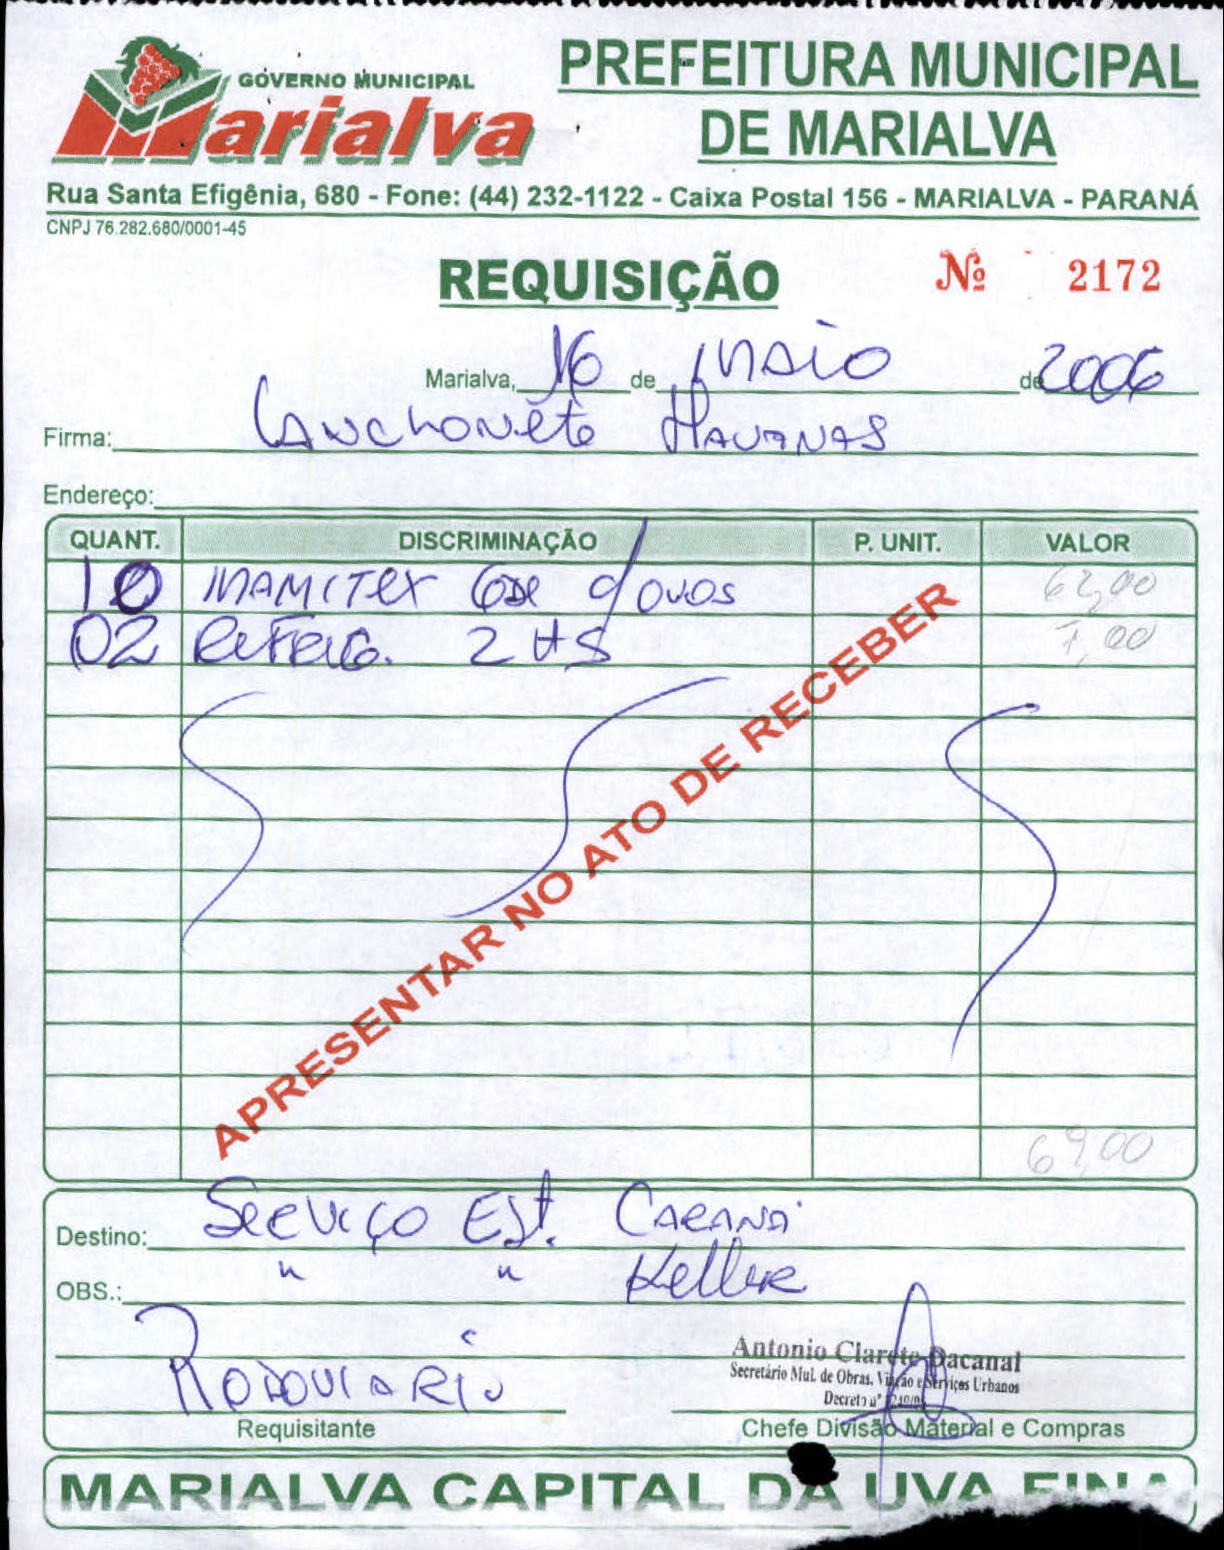 GOVERNO MUNICIPAL
Marialva
PREFEITURA MUNICIPAL
DE MARIALVA
Rua Santa Efigênia, 680 - Fone: (44) 232-1122 - Caixa Postal 156 - MARIALVA - PARANÁ
CNPJ 76.282.680/0001-45
REQUISIÇÃO Nº 2172
Marialva, 16 de MAIO de 2006
Firma: LANCHONETE HAVANAS
Endereço:
QUANT. DISCRIMINAÇÃO P. UNIT. VALOR
10 MAMITEX GDE c/ OVOS 62,00
02 REFRIG. 2 LTS 7,00
APRESENTAR NO ATO DE RECEBER
69,00
Destino: SERVIÇO EST.
OBS.: " " Keller
RODOVIARIO
Antonio Clarete Dacanal
Secretário Mul. de Obras, Viação e Serviços Urbanos
Decreto nº
Requisitante Chefe Divisão Material e Compras
MARIALVA CAPITAL DA UVA FINA